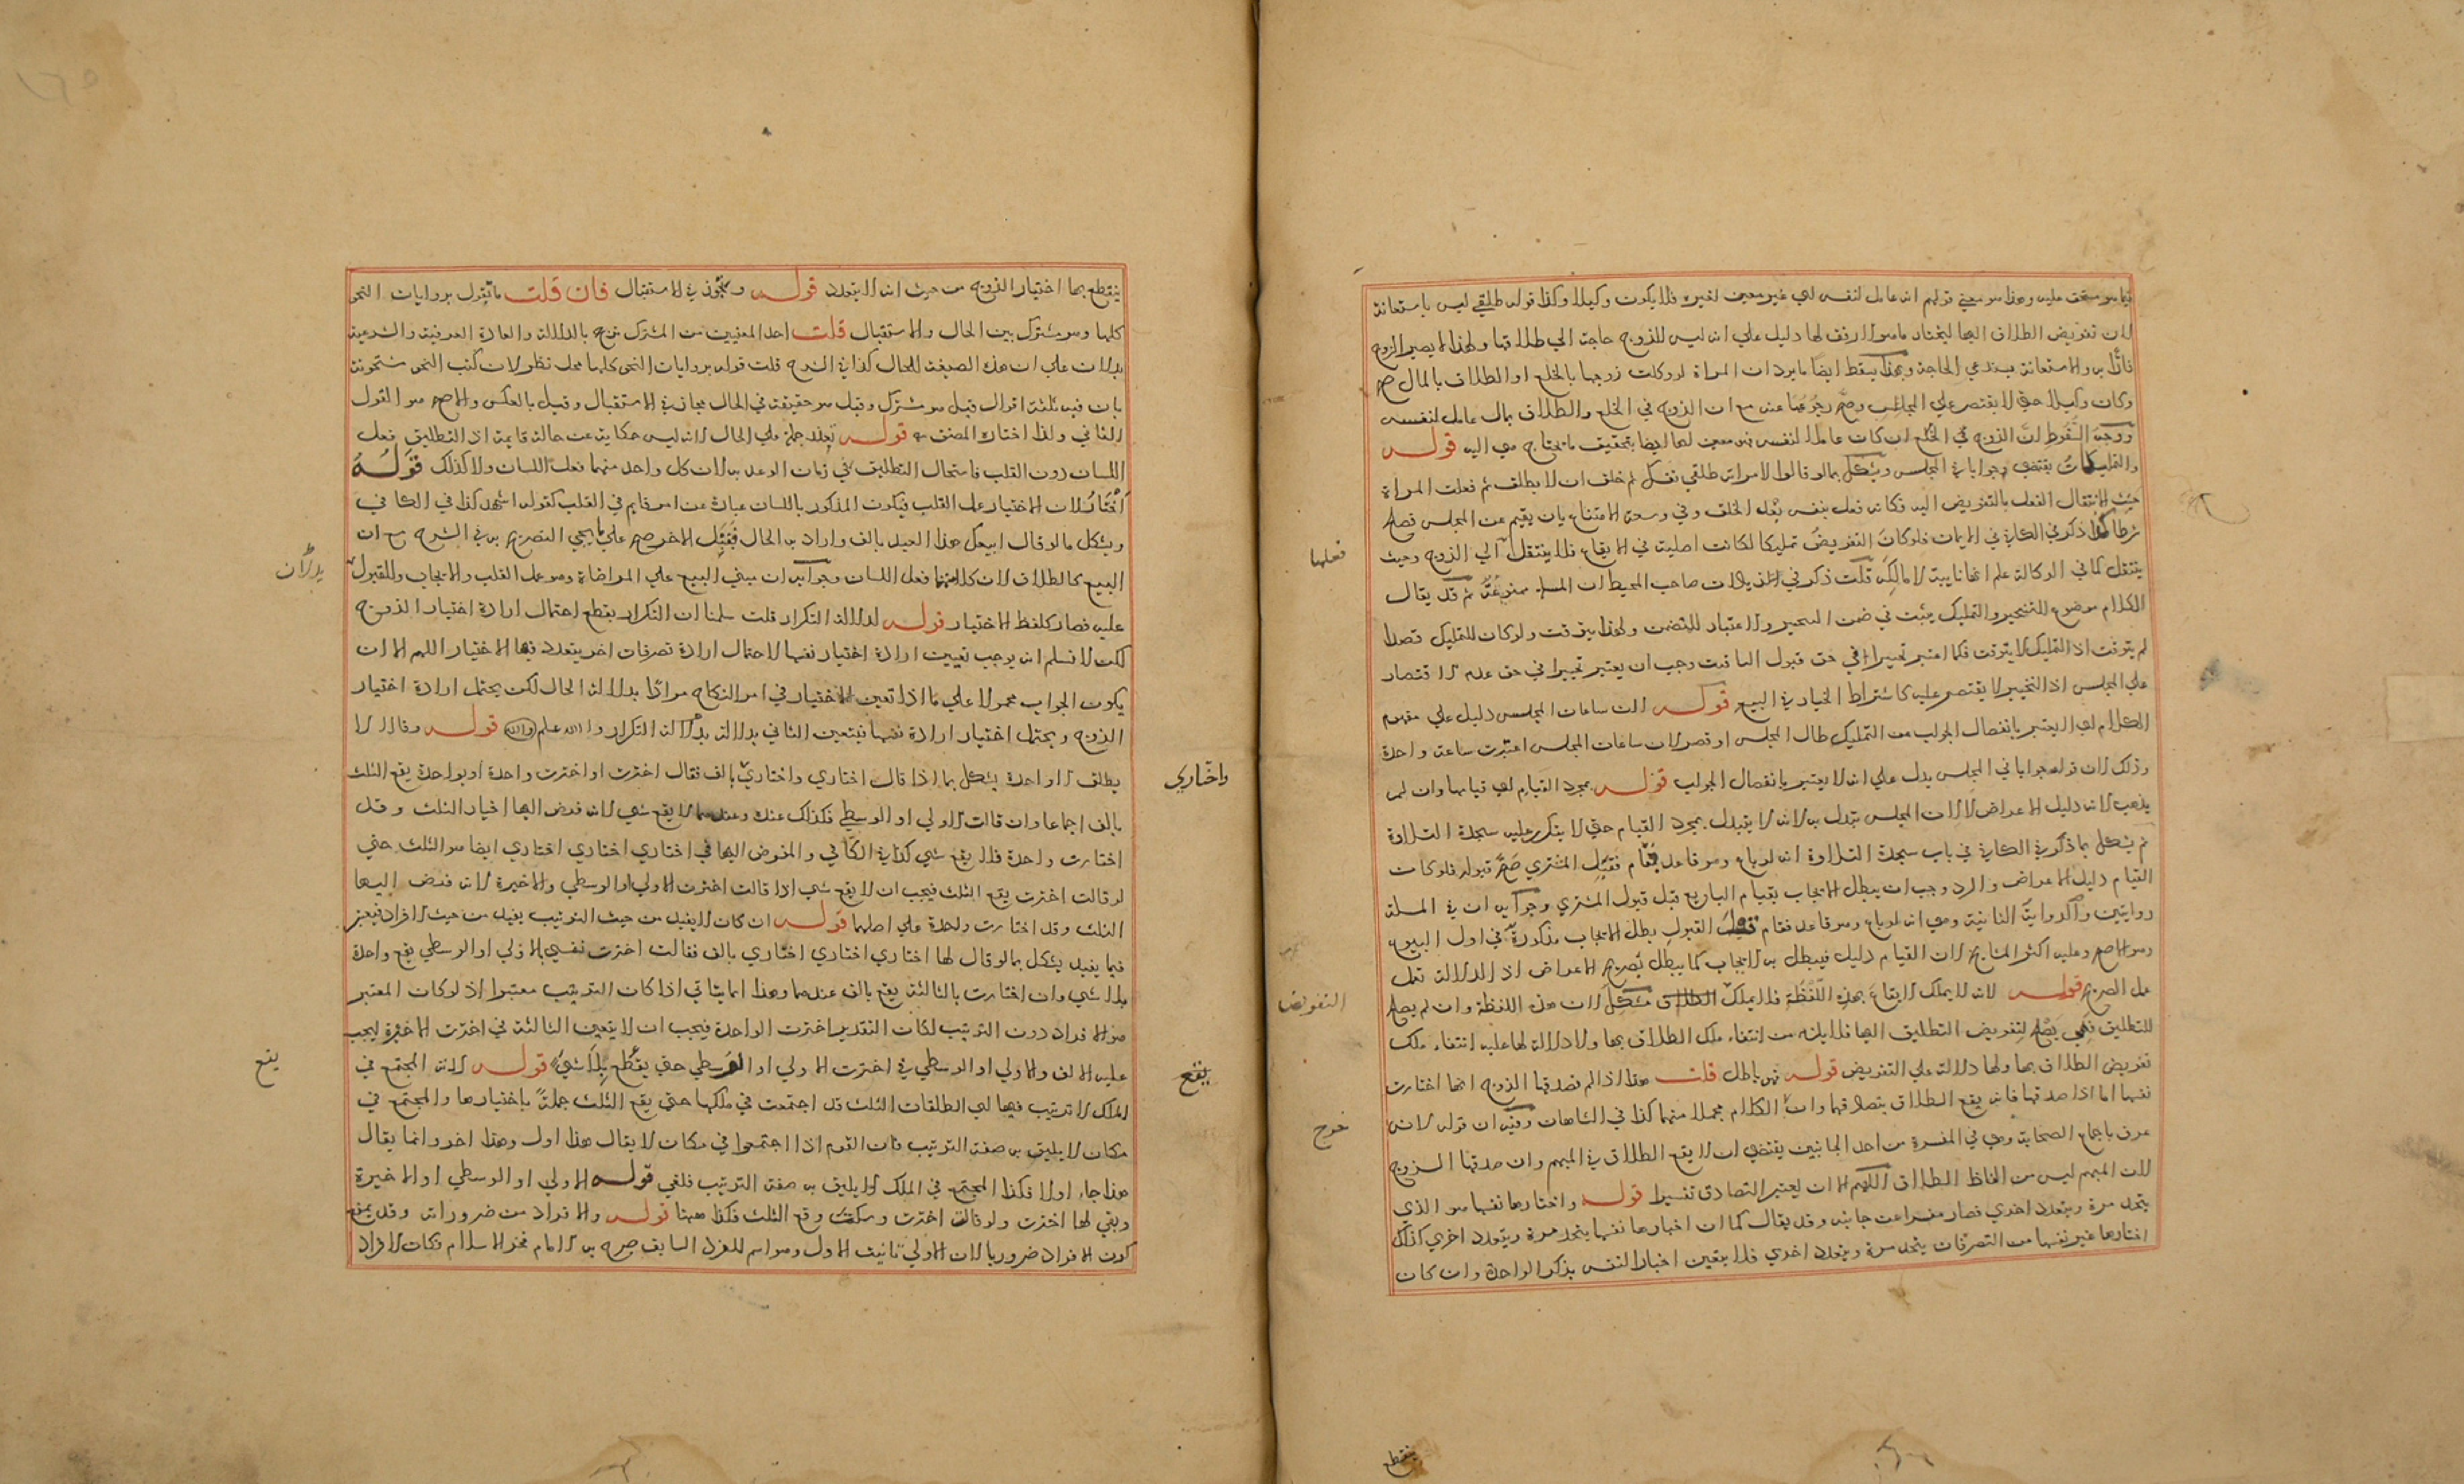 فيما هو مبعث عليه وهذا هو معنى قولهم انه عامل لنفسه اي غير معين لغيره فلا يكون وكيلا وكذا قوله طلقي ليس باستعانة
لان تفويض الطلاق اليها لتختار ما هو الارفق لها دليل علي انه ليس للزوج حاجة الي طلاقها ولهذا لا يصير الزوج
والاستعانة يبتني على الحاجة وبهذا يسقط ايضا ما يرد ان المراة لو وكلت زوجها بالخلع او الطلاق بالمال صح
وكان وكيلا حتي لا يقتصر علي المجلس وصح رجوعها عنه مع ان الزوج في الخلع والطلاق بمال عامل لنفسه
ووجه السقوط ان الزوج في الخلع ان كان عاملا لنفسه فهو معين لها ايضا بتحقيق ما تحتاج هي اليه قوله
والتمليكات يقتضي جوابا في المجلس ويشكل بما لو قال لامراته طلقي نفسك ثم حلف ان لا يطلق ثم فعلت المراة
حيث لانتقال الفعل بالتفويض اليه فكانه فعل بنفسه بعد الحلف وفي وسعه الامتناع بان يقيم عن المجلس فصار
شرطا كذا ذكر في الكافي في الايمان فلو كان التفويض تمليكا لكانت اصلية في الايقاع فلا ينتقل الي الزوج وحيث
ينتقل كما في الوكالة علم انها نايبة لا مالكة قلت ذكر في الزيادات صاحب المحيط ان المسلة ممنوعة ثم قد يقال
الكلام موضوع للتخيير والتمليك يثبت في ضمن التخيير والاعتبار للمتضمن ولهذا يتوقت ولو كان للتمليك قصدا
لم يتوقت اذ التمليك لا يتوقت فكما اعتبر تخييرا في حق قبول التاقيت وجب ان يعتبر تخييرا في حق عدم الاقتصار
علي المجلس اذ التخيير لا يقتصر عليه كاشتراط الخيار في البيع قوله لان ساعات المجلس دليل علي مفهوم
الكلام اي لا يعتبر بانفصال الجواب من التمليك طال المجلس او قصر لان ساعات المجلس اعتبرت ساعة واحدة
وذلك لان قوله جوابا في المجلس يدل علي انه لا يعتبر بانفصال الجواب قوله بمجرد القيام اي قيامها وان لم
يذهب لانه دليل الاعراض لا لان المجلس تبدل به لانه لا يتبدل بمجرد القيام حتي لا يتكرر عليه سجدة التلاوة
ثم يشكل بما ذكر في الكافي في باب سجدة التلاوة انه لو باع وهو قاعد فقام فقبل المشتري صح قبوله فلو كان
القيام دليل الاعراض والرد وجب ان يبطل الايجاب بقيام البايع قبل قبول المشتري وجوابه ان في المسلة
روايتين والرواية الثانية وهي انه لو باع وهو قاعد فقام قبل القبول بطل الايجاب مذكورة في اول البيوع
وهو الاصح وعليه اكثر المشايخ لان القيام دليل فيبطل به الايجاب كما يبطل بصريح الاعراض اذ الدلالة تعمل
عمل الصريح قوله لانه لا يملك الايقاع بهذه اللفظة فلا يملك الطلاق مشكل لان هذه اللفظة وان لم يصلح
للتطليق فهي يصلح لتفويض التطليق اليها فلا يلزم من انتفاء ملك الطلاق بها ولا دلالة لها عليه انتفاء ملك
تفويض الطلاق بها ولها دلالة علي التفويض قوله فهو باطل قلت هذا اذا لم تصدقها الزوج انها اختارت
نفسها اما اذا صدقها فانه يقع الطلاق بتصادقهما وان الكلام مجملا منهما كذا في الشاهان وفيه ان قوله لانه
عرف باجماع الصحابة وهي في المفسرة من احد الجانبين يقتضي ان لا يقع الطلاق في المبهم وان صدقها الزوج
لان المبهم ليس من الفاظ الطلاق اللهم الا ان يعتبر التصادق تفسيرا قوله واختيارها نفسها هو الذي
يتحد مرة ويتعدد اخري فصار مفسرا من جانبه وقد يقال كما ان اختيارها نفسها يتحد مرة ويتعدد اخري كذلك
اختيارها غير نفسها من التصرفات يتحد مرة ويتعدد اخري فلا يتعين اختيار النفس بذكر الواحدة وان كان
فعلها
التفويض
خرج
ينقطع
ينقطع بها اختيار الزوج من حيث انه لا يتعدد قوله وتجوز في الاستقبال فان قلت ما تقول بروايات النحو
كلها وهو مشترك بين الحال والاستقبال قلت احد المعنيين من المشترك يترجح بالدلالة والعادة العرفية والشرعية
يدلان علي ان هذه الصيغة للحال كذا في الشرح قلت قوله بروايات النحو كلها محل نظر لان كتب النحو مشحونة
بان فيه ثلثة اقوال قيل هو مشترك وقيل هو حقيقة في الحال مجاز في الاستقبال وقيل بالعكس والاصح هو القول
الثاني ولذا اختاره المصنف قوله تعذر حمله علي الحال لانه ليس حكاية عن حالة قايمة اذ التطليق فعل
اللسان دون القلب فاستحال التطليق في زمان الوعد به لان كل واحد منهما فعل اللسان ولا كذلك قوله
اختار لان الاختيار عمل القلب فيكون المذكور باللسان عبارة عن امر قايم في القلب كقوله اشهد كذا في الكافي
ويشكل ما لو قال ابيعك هذا العبد بالف واراد به الحال فقبل الاخر صح علي ما يجي التصريح به في الشرح مع ان
البيع كالطلاق لان كلا منهما فعل اللسان وجوابه ان مبني البيع علي المراضاة وهو عمل القلب والايجاب والقبول
عليه فصار كلفظ الاختيار قوله لدلالة التكرار قلت سلمنا ان التكرار يقطع احتمال ارادة اختيار الزوج
لكن لا نسلم انه يوجب تعيين ارادة اختيار نفسها لاحتمال ارادة تصرفات اخر يتعدد فيها الاختيار اللهم الا ان
يكون الجواب محمولا علي ما اذا تعين الاختيار في امر النكاح مرادا بدلالة الحال لكن يحتمل ارادة اختيار
الزوج ويحتمل اختيار ارادة نفسها فيتعين الثاني بدلالة التكرار والله اعلم قوله وقالا لا
يطلق الا واحدة يشكل بما اذا قال اختاري واختاري بالف فقال اخترت او اخترت واحدة او بواحدة يقع الثلث
بالف اجماعا وان قالت الاولي او الوسطي فكذلك عنده وعندهما لا يقع شي لانه فوض اليها اختيار الثلث وقد
اختارت واحدة فلا يقع شي كذا في الكافي والمفوض اليها في اختاري اختاري اختاري ايضا هو الثلث حتي
لو قالت اخترت يقع الثلث فيجب ان لا يقع شي اذا قالت اخترت الاولي او الوسطي والاخيرة لانه فوض اليها
الثلث وقد اختارت واحدة علي اصلهما قوله ان كان لا يفيد من حيث الترتيب يفيد من حيث الافراد فيعتبر
فيما يفيد يشكل بما لو قال لها اختاري اختاري اختاري بالف فقالت اخترت نفسي بالاولي او الوسطي يقع واحدة
بلا شي وان اختارت بالثالثة يقع بالف عندهما وهذا انما يتاتي اذا كان الترتيب معتبرا اذ لو كان المعتبر
هو الافراد دون الترتيب لكان التقدير اخترت الواحدة فيجب ان لا يتعين الثالثة في اخترت الاخيرة ليجب
عليه الالف والاولي او الوسطي في اخترت الاولي او الوسطي حتي يقع بلا شي قوله لان المجتمع في
الملك لا ترتيب فيها اي الطلقات الثلث قد اجتمعت في ملكها حتي يقع الثلث جملة باختيارها والمجتمع في
مكان لا يليق به صفة الترتيب فان القوم اذا اجتمعوا في مكان لا يقال هذا اول وهذا اخر وانما يقال
هذا جاء اولا فكذا المجتمع في الملك لا يليق به صفة الترتيب فلغي قوله الاولي او الوسطي او الاخيرة
وبقي لها اخترت ولو قالت اخترت وسكتت وقع الثلث فكذا ههنا قوله والافراد من ضروراته وقد يمنع
كون الافراد ضروريا لان الاولي تانيث الاول وهو اسم للفرد السابق صرح به الامام فخر الاسلام فكان الافراد
يدلان
واختاري
يقع
يقع
١٦٥